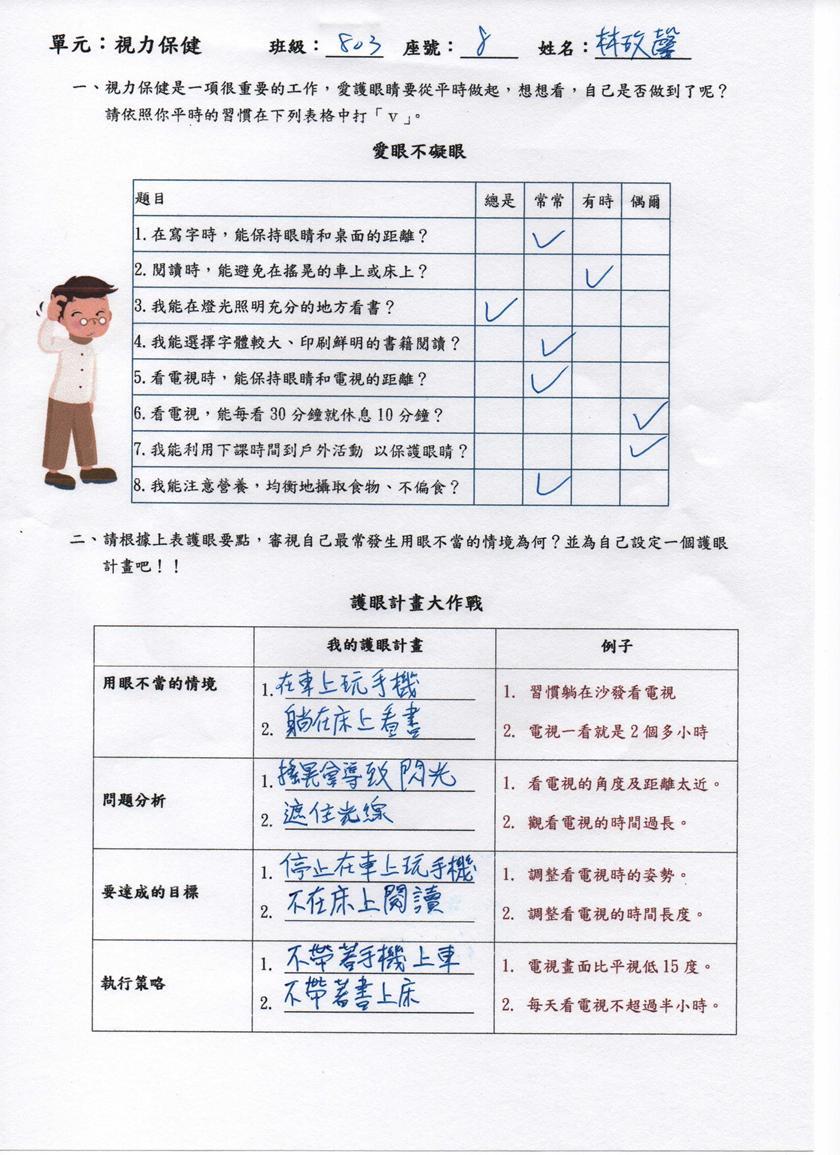 單元：視力保健 班級：803 座號：8 姓名：林玫馨
一、視力保健是一項很重要的工作，愛護眼睛要從平時做起，想想看，自己是否做到了呢？
請依照你平時的習慣在下列表格中打「v」。
愛眼不礙眼
題目 總是 常常 有時 偶爾
1.在寫字時，能保持眼睛和桌面的距離？ ✓
2.閱讀時，能避免在搖晃的車上或床上？ ✓
3.我能在燈光照明充分的地方看書？ ✓
4.我能選擇字體較大、印刷鮮明的書籍閱讀？ ✓
5.看電視時，能保持眼睛和電視的距離？ ✓
6.看電視，能每看30分鐘就休息10分鐘？ ✓
7.我能利用下課時間到戶外活動 以保護眼睛？ ✓
8.我能注意營養，均衡地攝取食物、不偏食？ ✓
二、請根據上表護眼要點，審視自己最常發生用眼不當的情境為何？並為自己設定一個護眼
計畫吧！！
護眼計畫大作戰
我的護眼計畫 例子
用眼不當的情境
1.在車上玩手機
2.躺在床上看書
1. 習慣躺在沙發看電視
2. 電視一看就是2個多小時
問題分析
1.搖晃會導致閃光
2.遮住光線
1. 看電視的角度及距離太近。
2. 觀看電視的時間過長。
要達成的目標
1.停止在車上玩手機
2.不在床上閱讀
1. 調整看電視時的姿勢。
2. 調整看電視的時間長度。
執行策略
1.不帶著手機上車
2.不帶著書上床
1. 電視畫面比平視低15度。
2. 每天看電視不超過半小時。